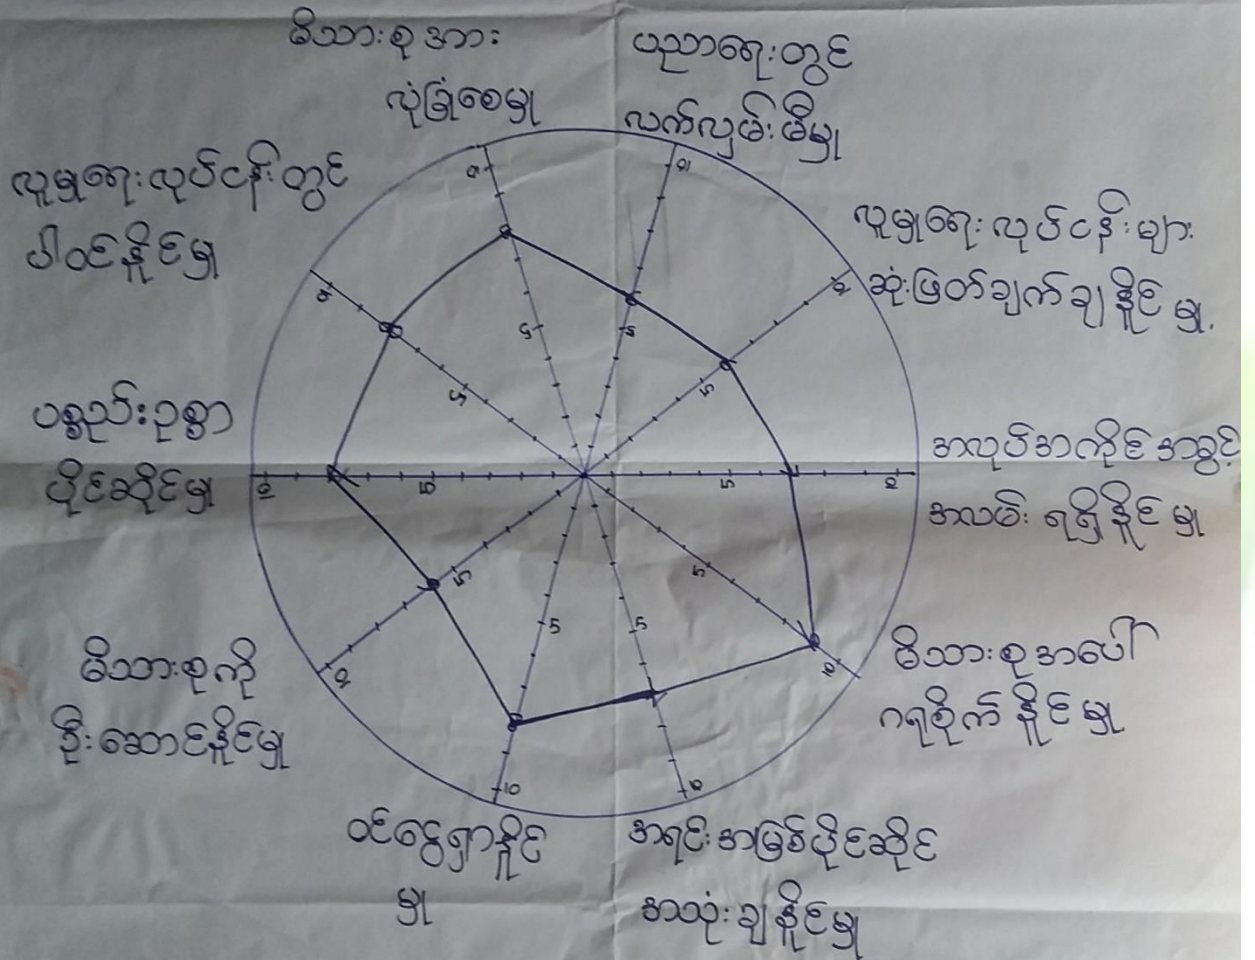 မိသားစုအား
လုံခြုံစေမှု
ပညာရေးတွင်
လက်လှမ်းမီမှု
လူမှုရေးလုပ်ငန်းများ
ဆုံးဖြတ်ချက်ချနိုင်မှု
အလုပ်အကိုင်အခွင့်
အလမ်းရရှိနိုင်မှု
မိသားစုအပေါ်
ဂရုစိုက်နိုင်မှု
အရင်းအမြစ်ပိုင်ဆိုင်
အသုံးချနိုင်မှု
ဝင်ငွေရှာနိုင်
မှု
မိသားစုကို
ဦးဆောင်နိုင်မှု
ပစ္စည်းဥစ္စာ
ပိုင်ဆိုင်မှု
လူမှုရေးလုပ်ငန်းတွင်
ပါဝင်နိုင်မှု
10
5
10
5
10
5
10
5
10
5
10
5
10
5
10
5
10
5
10
5